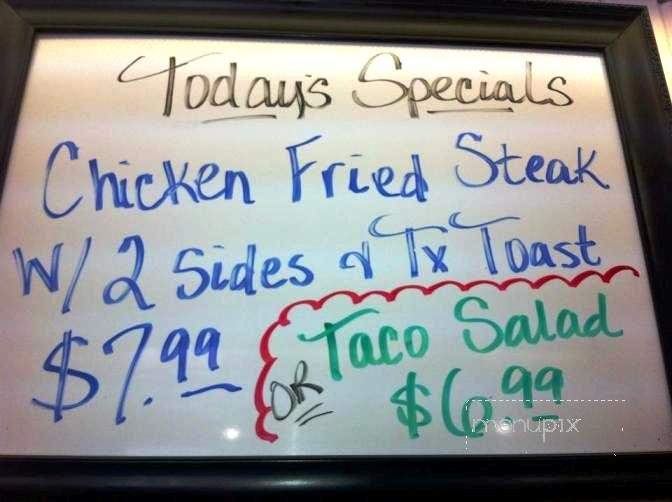 Today's Specials
Chicken Fried Steak
W/ 2 Sides & Tx Toast
$7.99
OR
Taco Salad
$6.99
menupix